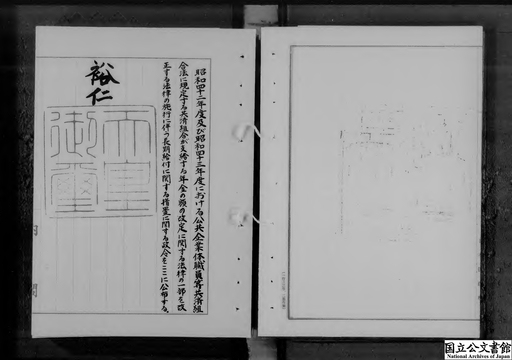 昭和四十二年度及び昭和四十三年度における公共企業体職員等共済組
合法に規定する共済組合が支給する年金の額の改定に関する法律の一部を改
正する法律の施行に伴う長期給付に関する措置に関する政令をここに公布する。
裕仁
天皇
御璽
国立公文書館
National Archives of Japan